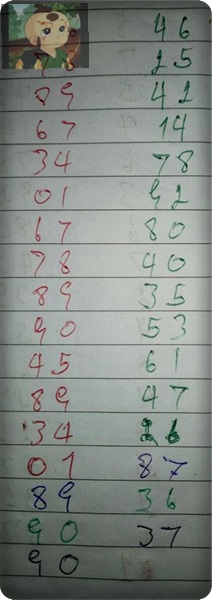 46
25
89 42
67 14
34 78
01 92
67 80
78 40
89 35
90 53
45 61
89 47
34 26
01 87
89 36
90 37
90